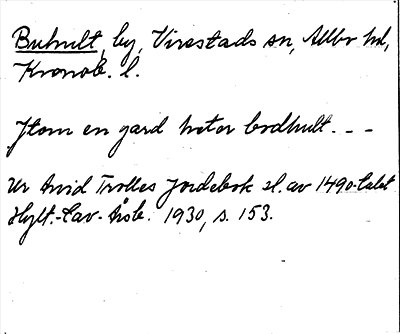 Buhult, by, Virestads sn, Allbo hd,
Kronob. l.
Jtem en gard heter bodhult. - -
Ur Arvid Trolles Jordebok sl. av 1490-talet
Hylt.-Cav.-Årsb. 1930, s. 153.